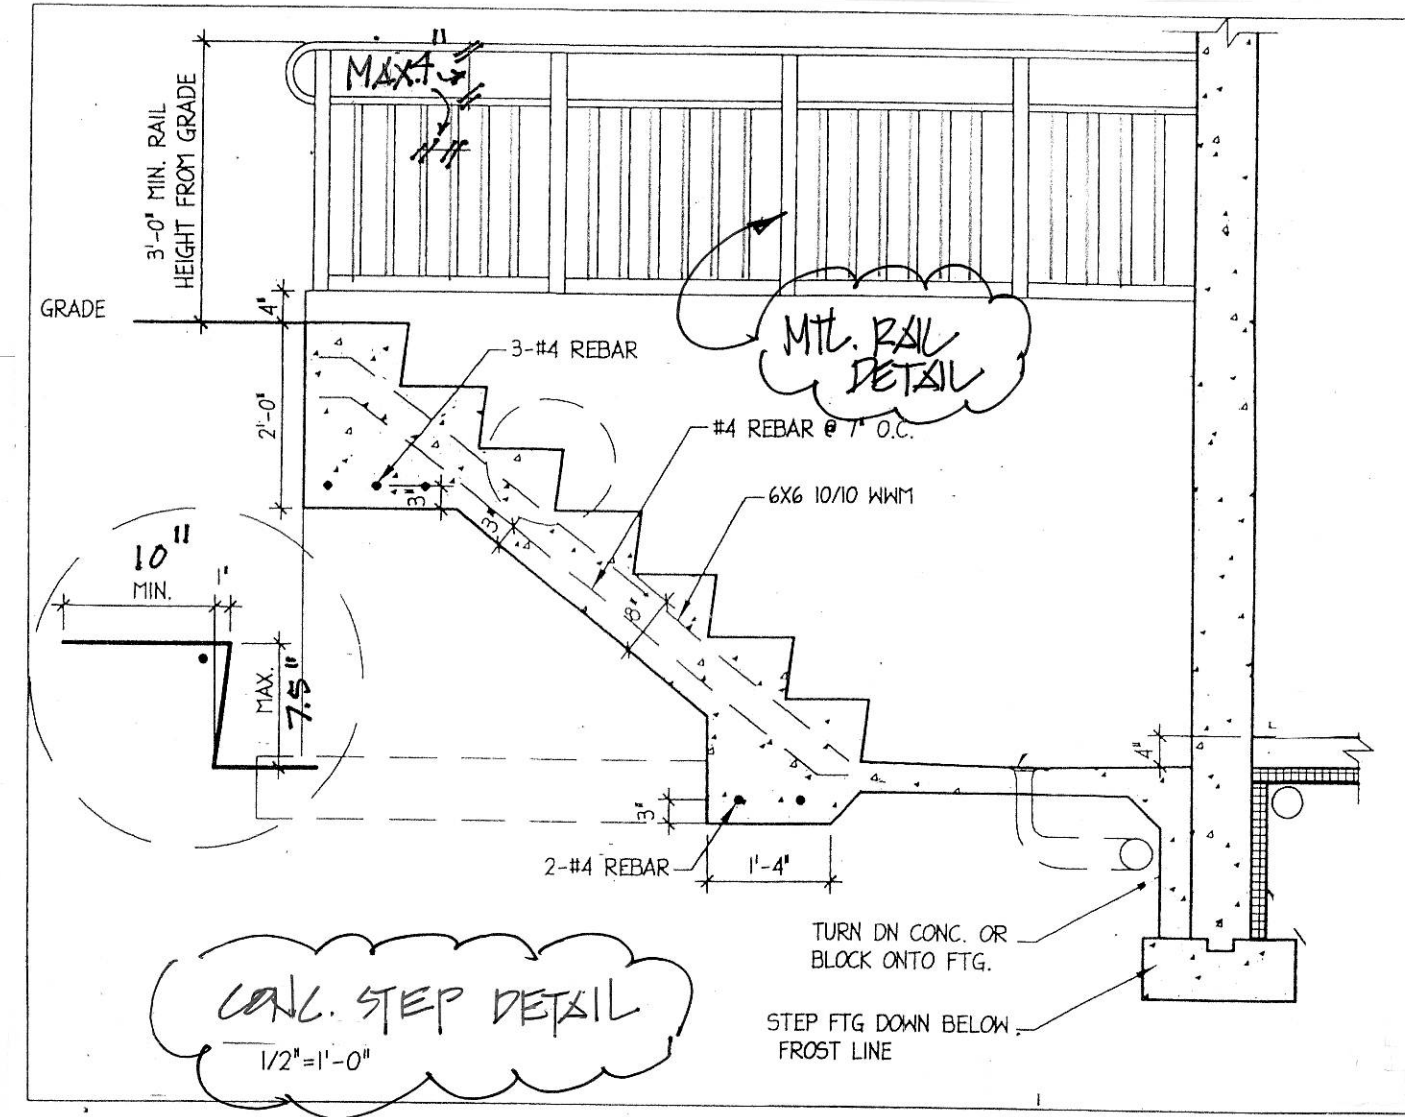 MAX.4"
3'-0" MIN. RAIL
HEIGHT FROM GRADE
GRADE
4"
3-#4 REBAR
MTL. RAIL
DETAIL
2'-0"
#4 REBAR @ 7" O.C.
6X6 10/10 WWM
3"
3"
8"
10"
MIN.
1"
MAX.
7.5"
4"
3"
2-#4 REBAR
1'-4"
TURN DN CONC. OR
BLOCK ONTO FTG.
STEP FTG DOWN BELOW
FROST LINE
CONC. STEP DETAIL
1/2"=1'-0"